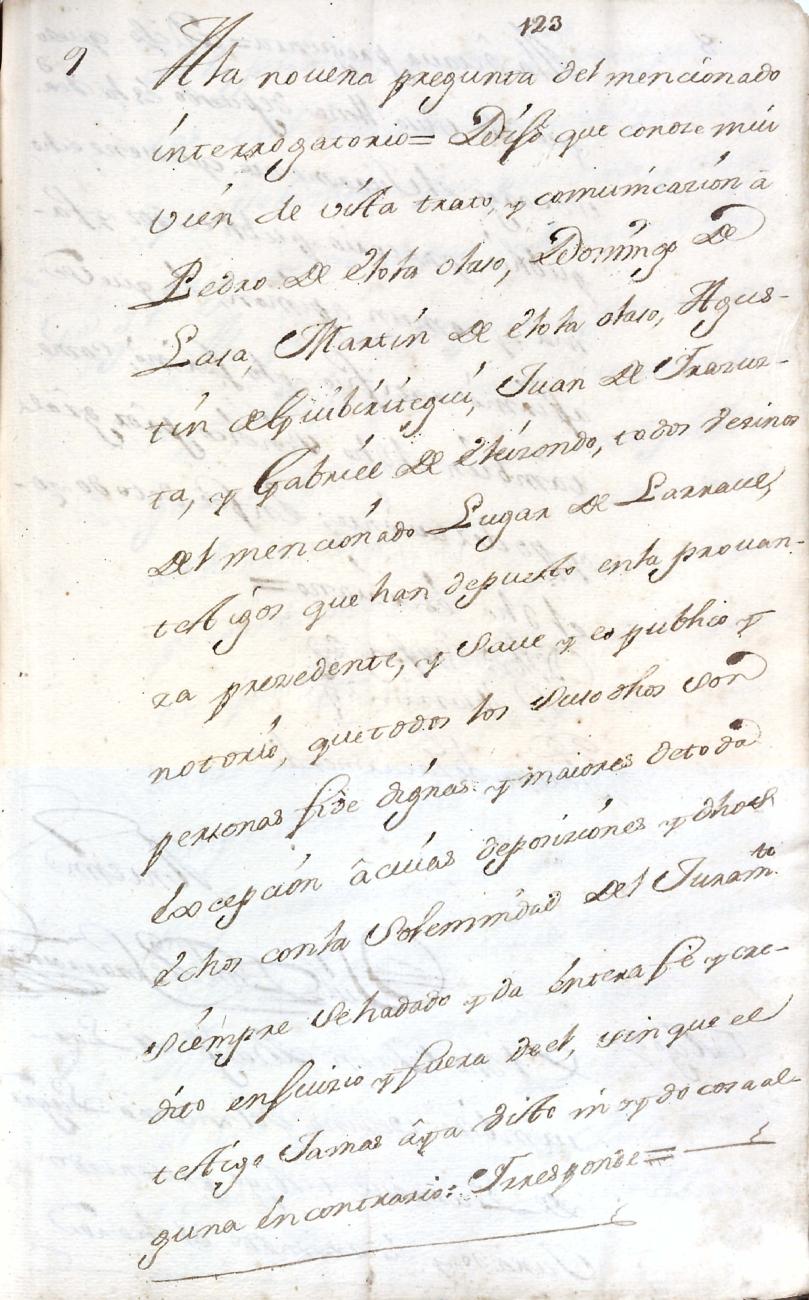 123
9 A la novena pregunta del mencionado
interrogatorio= Dijo que conoze mui
vien de vista trato, y comunicazion à
Pedro de Elola olaso, Domingo de
Lasa, Martin de Elola olaso, Agus-
tin de Guibiritegui, Juan de Irazus-
ta, y Gabriel de Elizondo, todos vezinos
del mencionado Lugar de Larraul,
testigos que han depuesto en la provan-
za prezedente, y save y es publico y
notorio, que todos los suso dhos son
personas fide dignas y maiores de toda
excepcion â cuias deposiziones y dhos
echos con la Solemnidad del Juramto
siempre se ha dado y da entera fe y cre-
dito en juizio y fuera de el, sin que el
testigo Jamas âya visto ni oydo cosa al-
guna en contrario: Y responde=